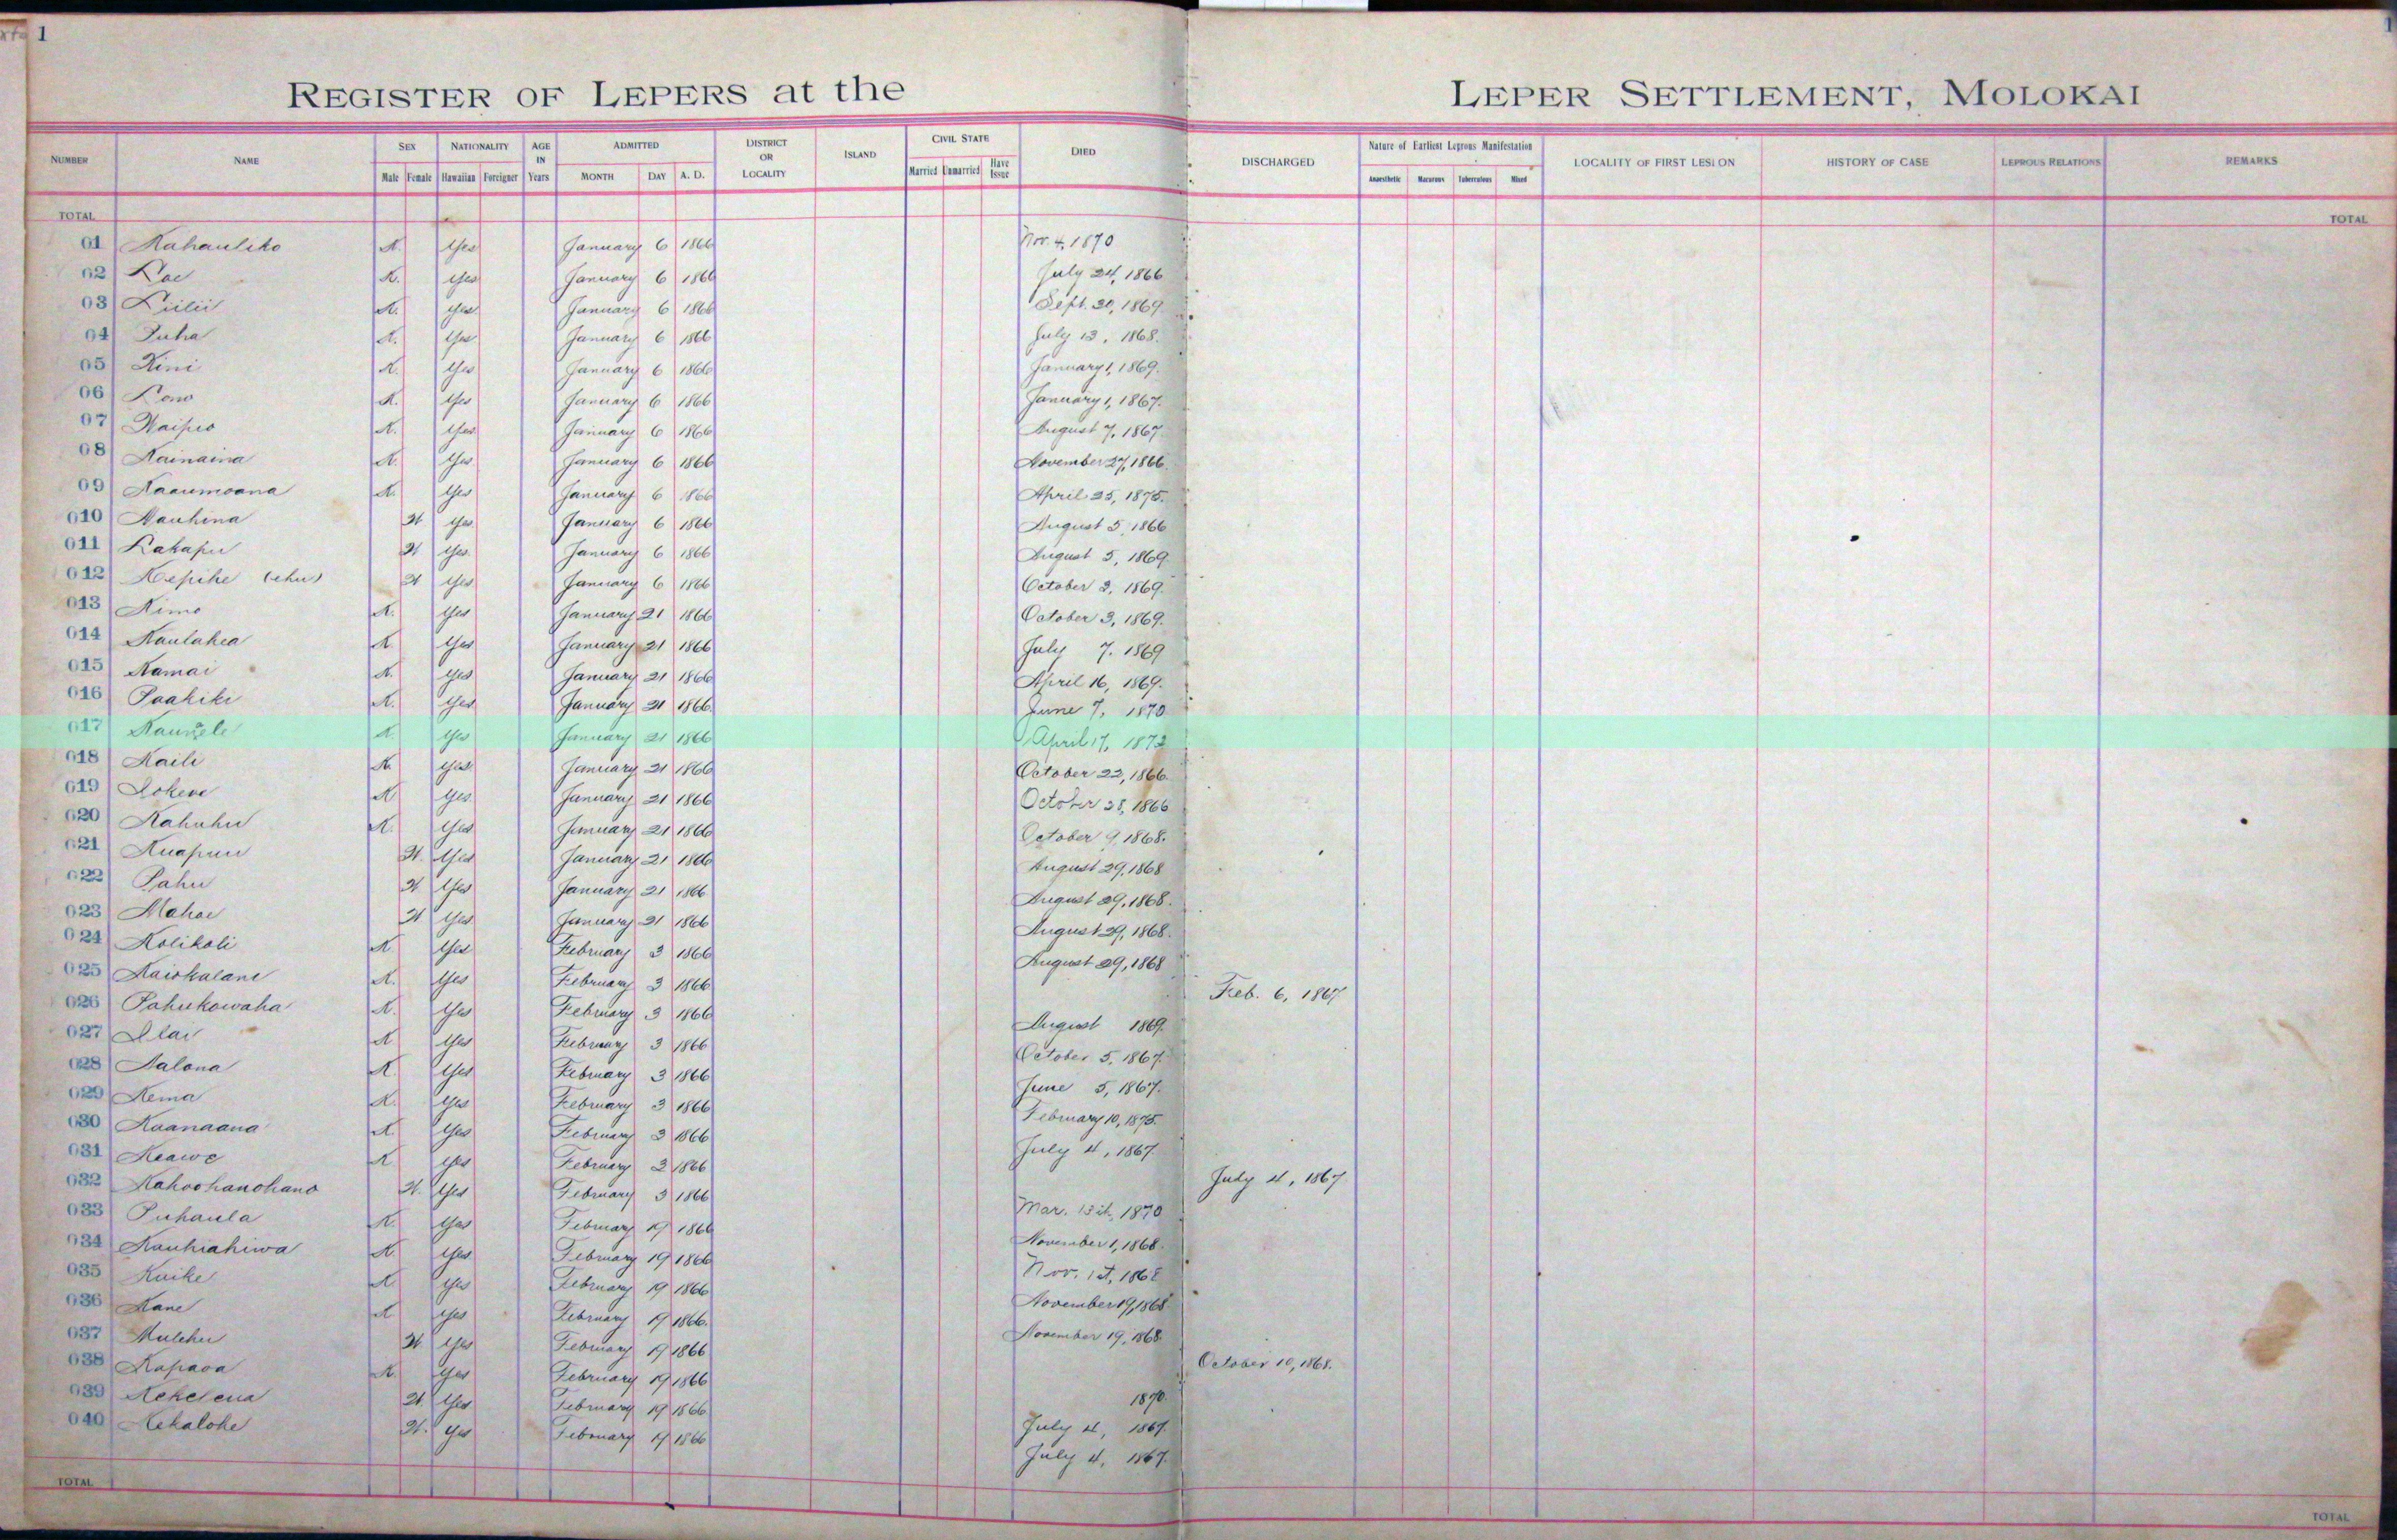 1
REGISTER OF LEPERS at the LEPER SETTLEMENT, MOLOKAI
NUMBER NAME SEX NATIONALITY AGE IN Years ADMITTED DISTRICT OR LOCALITY ISLAND CIVIL STATE DIED DISCHARGED Nature of Earliest Leprous Manifestation LOCALITY OF FIRST LESION HISTORY OF CASE LEPROUS RELATIONS REMARKS
Male Female Hawaiian Foreigner MONTH DAY A. D. Married Unmarried Have Issue Anaesthetic Tuberculous Mixed
TOTAL TOTAL
01 Kahauliko M. Yes January 6 1866 Nov. 4, 1870
02 Loe M. Yes January 6 1866 July 24, 1866
03 Liilii M. Yes January 6 1866 Sept. 30, 1869
04 Puha M. Yes January 6 1866 July 13, 1868.
05 Kini M. Yes January 6 1866 January 1, 1869.
06 Lono M. Yes January 6 1866 January 1, 1867.
07 Waipio M. Yes January 6 1866 August 7, 1867.
08 Kainaina M. Yes January 6 1866 November 27, 1866.
09 Kaaumoana M. Yes January 6 1866 April 25, 1875.
010 Nauhina W Yes January 6 1866 August 5, 1866
011 Lakapu W Yes January 6 1866 August 5, 1869.
012 Kepihe (ehu) W Yes January 6 1866 October 3, 1869.
013 Kimo M. Yes January 21 1866 October 3, 1869.
014 Kaulahea M. Yes January 21 1866 July 7, 1869
015 Kamai M. Yes January 21 1866 April 16, 1869.
016 Paakiki M. Yes January 21 1866 June 7, 1870
017 M. Yes January 21 1866 April 17, 1872
018 Kaili M. Yes January 21 1866 October 22, 1866.
019 Lokene M. Yes January 21 1866 October 28, 1866
020 Kahuhu M. Yes January 21 1866 October 9, 1868.
021 Kuapuu W. Yes January 21 1866 August 29, 1868
022 Pahu W Yes January 21 1866 August 29, 1868.
023 Mahoe W Yes January 21 1866 August 29, 1868.
024 Kolikoli M. Yes February 3 1866 August 29, 1868
025 Kaiokalani M. Yes February 3 1866 Feb. 6, 1867
026 Pahukowaha M. Yes February 3 1866 August 1869.
027 Ilai M Yes February 3 1866 October 5, 1867.
028 Nalona M. Yes February 3 1866 June 5, 1867.
029 Kema M. Yes February 3 1866 February 10, 1875.
030 Kaanaana M. Yes February 3 1866 July 4, 1867
031 Keawe M Yes February 3 1866 July 4, 1867
032 Kahoohanohano W. Yes February 3 1866 Mar. 15th, 1870
033 Puhaula M. Yes February 19 1866 November 1, 1868.
034 Kauhiahiwa M. Yes February 19 1866 Nov. 1st, 1868
035 Kuike M Yes February 19 1866 November 19, 1868
036 Kane M Yes February 19 1866. November 19, 1868.
037 Mulehu W Yes February 19 1866 October 10, 1868.
038 Kapaoa M. Yes February 19 1866 1870.
039 Kekelena W Yes February 19 1866 July 4, 1867.
040 Kekalohe W. Yes February 19 1866 July 4, 1867.
TOTAL TOTAL